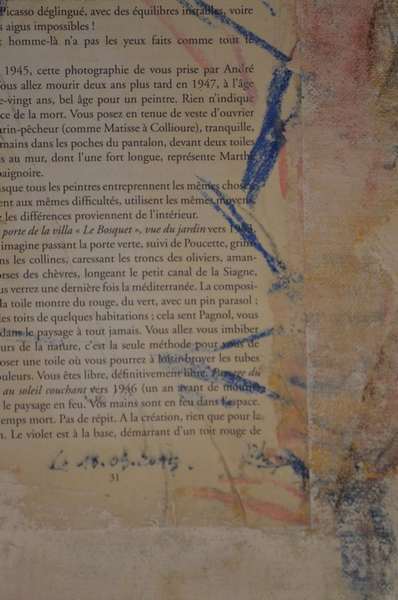 Picasso déglingué, avec des équilibres instables, voire
s aigus impossibles !
t homme-là n'a pas les yeux faits comme tout le
1945, cette photographie de vous prise par André
ous allez mourir deux ans plus tard en 1947, à l'âge
e-vingt ans, bel âge pour un peintre. Rien n'indique
ce de la mort. Vous posez en tenue de veste d'ouvrier
arin-pêcheur (comme Matisse à Collioure), tranquille,
mains dans les poches du pantalon, devant deux toiles
s au mur, dont l'une fort longue, représente Marth
baignoire.
sque tous les peintres entreprennent les mêmes choses
ent aux mêmes difficultés, utilisent les mêmes moyens
les différences proviennent de l'intérieur.
porte de la villa « Le Bosquet », vue du jardin vers
imagine passant la porte verte, suivi de Poucette, grim
ns les collines, caressant les troncs des oliviers, aman-
orses des chèvres, longeant le petit canal de la Siagne,
us verrez une dernière fois la méditerranée. La composi-
la toile montre du rouge, du vert, avec un pin parasol ;
les toits de quelques habitations ; cela sent Pagnol, vous
dans le paysage à tout jamais. Vous allez vous imbiber
urs de la nature, c'est la seule méthode pour vous de
oser une toile où vous pourrez à loisir broyer les tubes
ouleurs. Vous êtes libre, définitivement libre. Paysage du
au soleil couchant vers 1946 (un an avant de mourir
le paysage en feu. Vos mains sont en feu dans l'espace.
emps mort. Pas de répit. A la création, rien que pour la
n. Le violet est à la base, démarrant d'un toit rouge de
Le
31